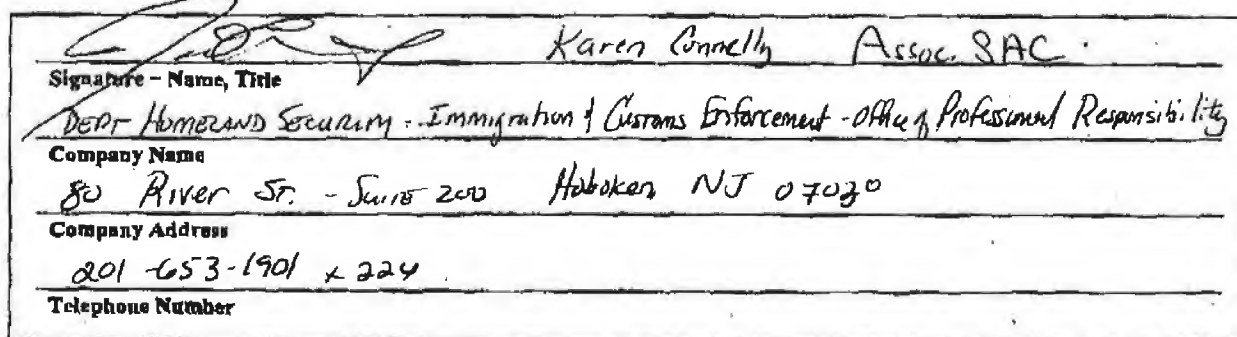 Karen Connelly Assoc. SAC
Signature – Name, Title
DEPT HOMELAND SECURITY - Immigration & Customs Enforcement - Office of Professional Responsibility
Company Name
80 River ST. - Suite 200 Hoboken NJ 07030
Company Address
201-653-1901 x 224
Telephone Number